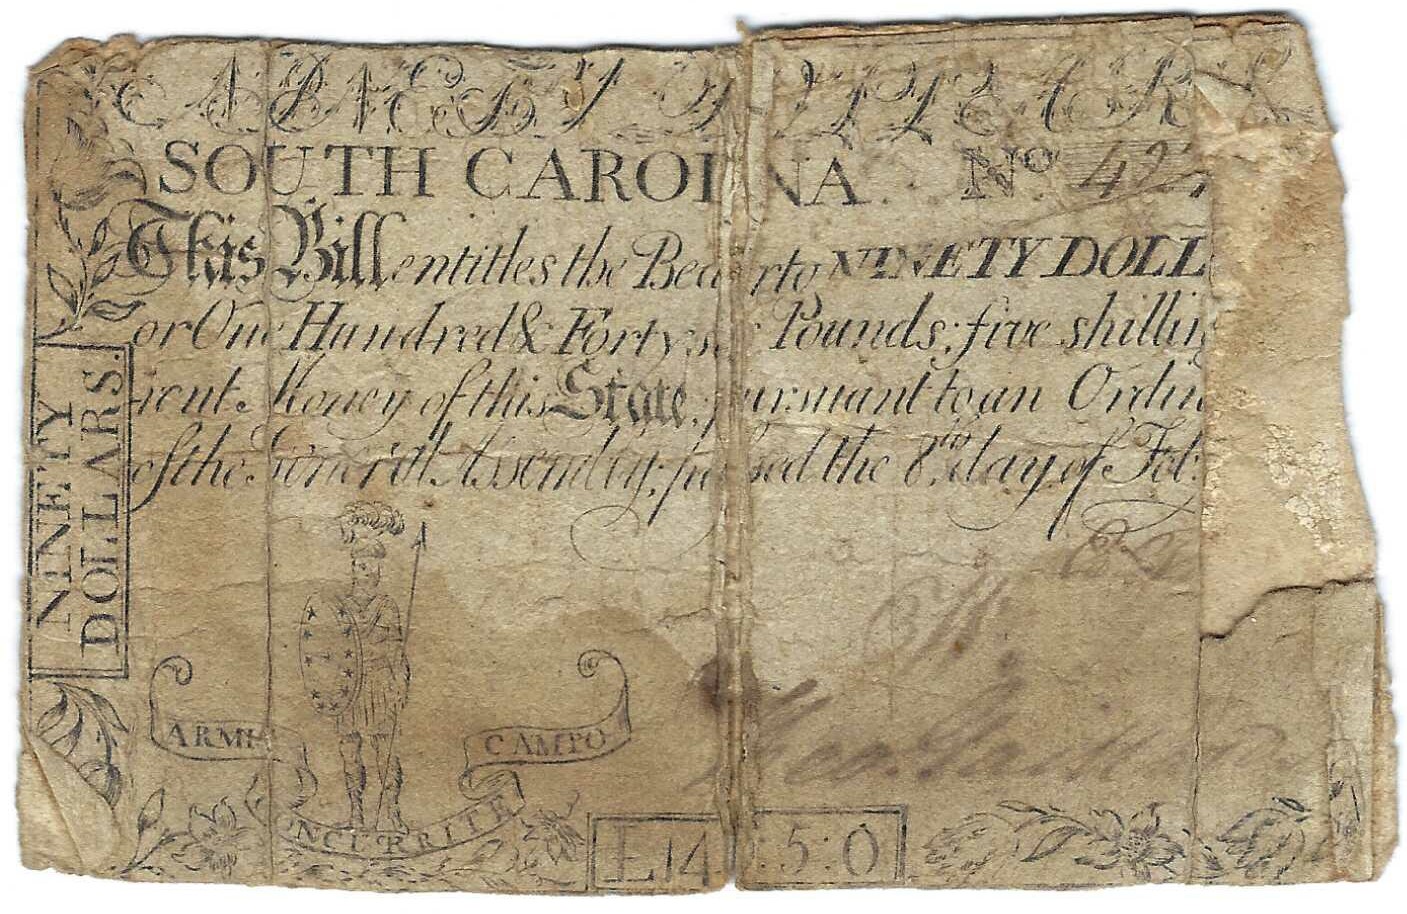 SOUTH CAROLINA. No 422
This Bill entitles the Bearer to NINETY DOLL
or One Hundred & Forty six Pounds; five shillin
rent Money of this State, pursuant to an Ordin
of the General Assembly; passed the 8th day of Feb:
NINETY
DOLLARS.
ARMI CAMPO
ONCURRITE
£14 :5:0